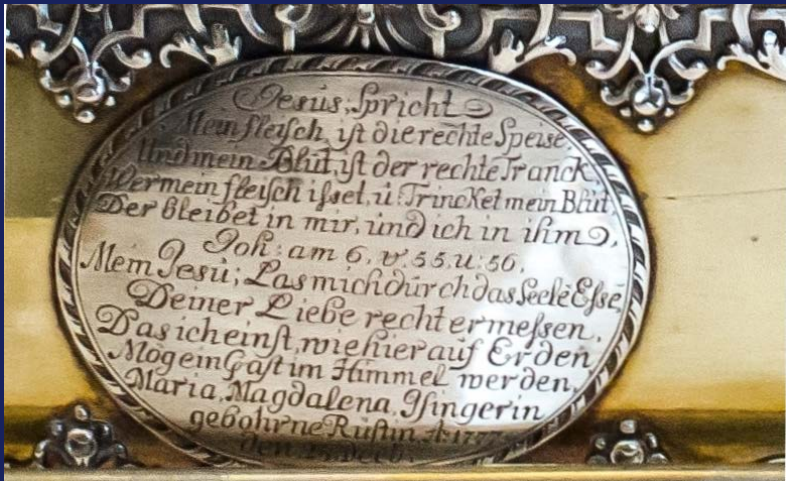 Jesus, Spricht
Mein fleisch, ist die rechte Speise,
Und mein Blut, ist der rechte Tranck
Wer mein fleisch isset, ü: Trincket mein Blut
Der bleibet in mir, und ich in ihm,
Joh: am 6, v: 55. u: 56,
Mein Jesu; Las mich durch das Seele Essē,
Deiner Liebe recht ermessen,
Das ich einst, wie hier auf Erden,
Mög ein Gast im Himmel werden,
Maria, Magdalena,
gebohrne Rustin, A:
den